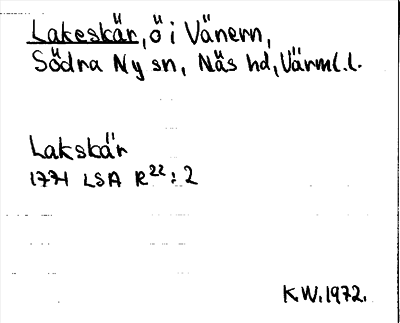 Lakeskär, ö i Vänern,
Södra Ny sn, Näs hd, Värml.l.
Lakskär
1771 LSA R22:2
K.W. 1972.